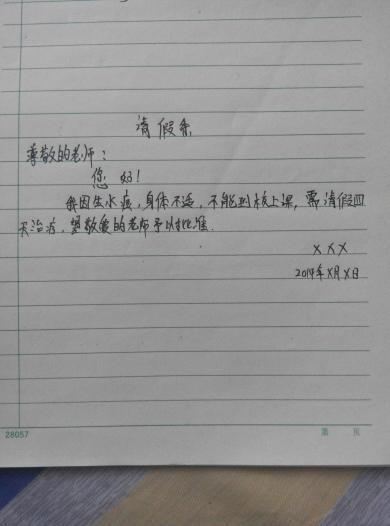 请假条
尊敬的老师：
您 好！
我因生水痘，身体不适，不能到校上课，需请假四
天治疗，望敬爱的老师予以批准.
XXX
2014年X月X日
28057
第 页